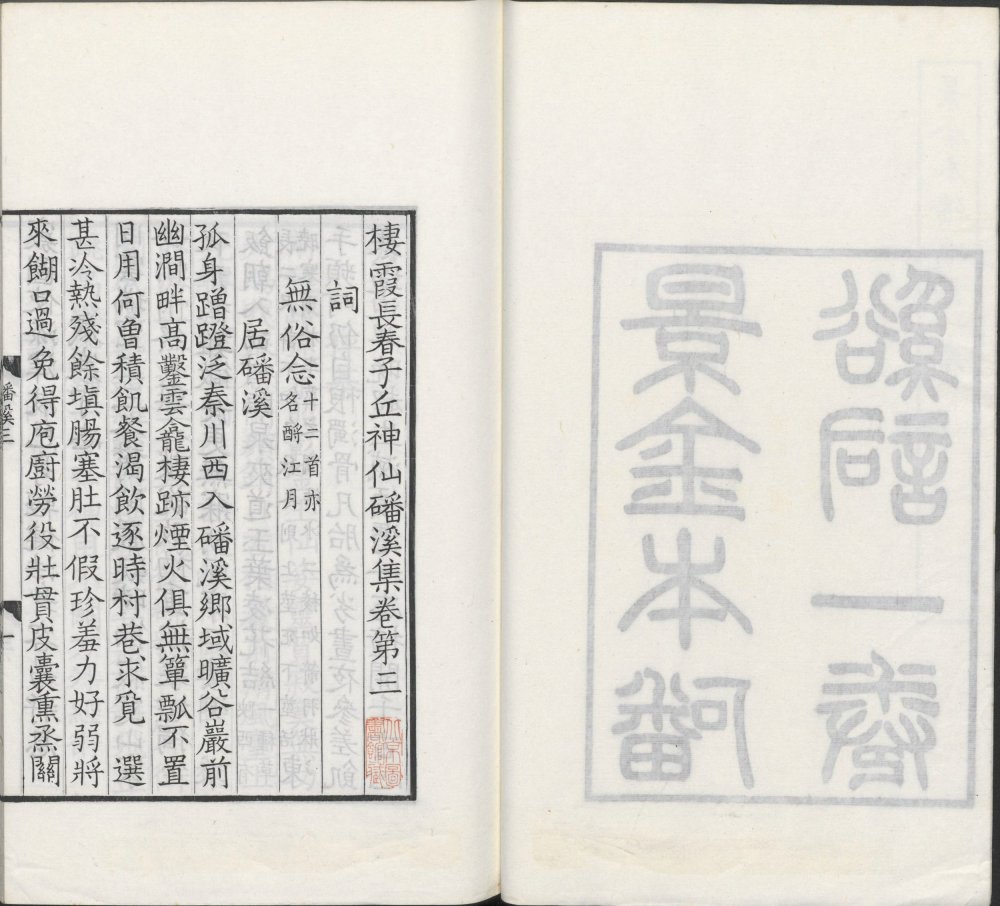 景金本磻
谿詞一卷
棲霞長春子丘神仙磻溪集卷第三
北京圖
書館藏
詞
無俗念十二首亦
名酹江月
居磻溪
孤身蹭蹬泛秦川西入磻溪鄉域曠谷巖前
幽澗畔高鑿雲龕棲跡煙火俱無簞瓢不置
日用何曾積飢餐渴飲逐時村巷求覓　選
甚冷熱殘餘塡腸塞肚不假珍羞力好弱將
來餬口過免得庖廚勞役壯貫皮囊熏烝關
磻溪三
一